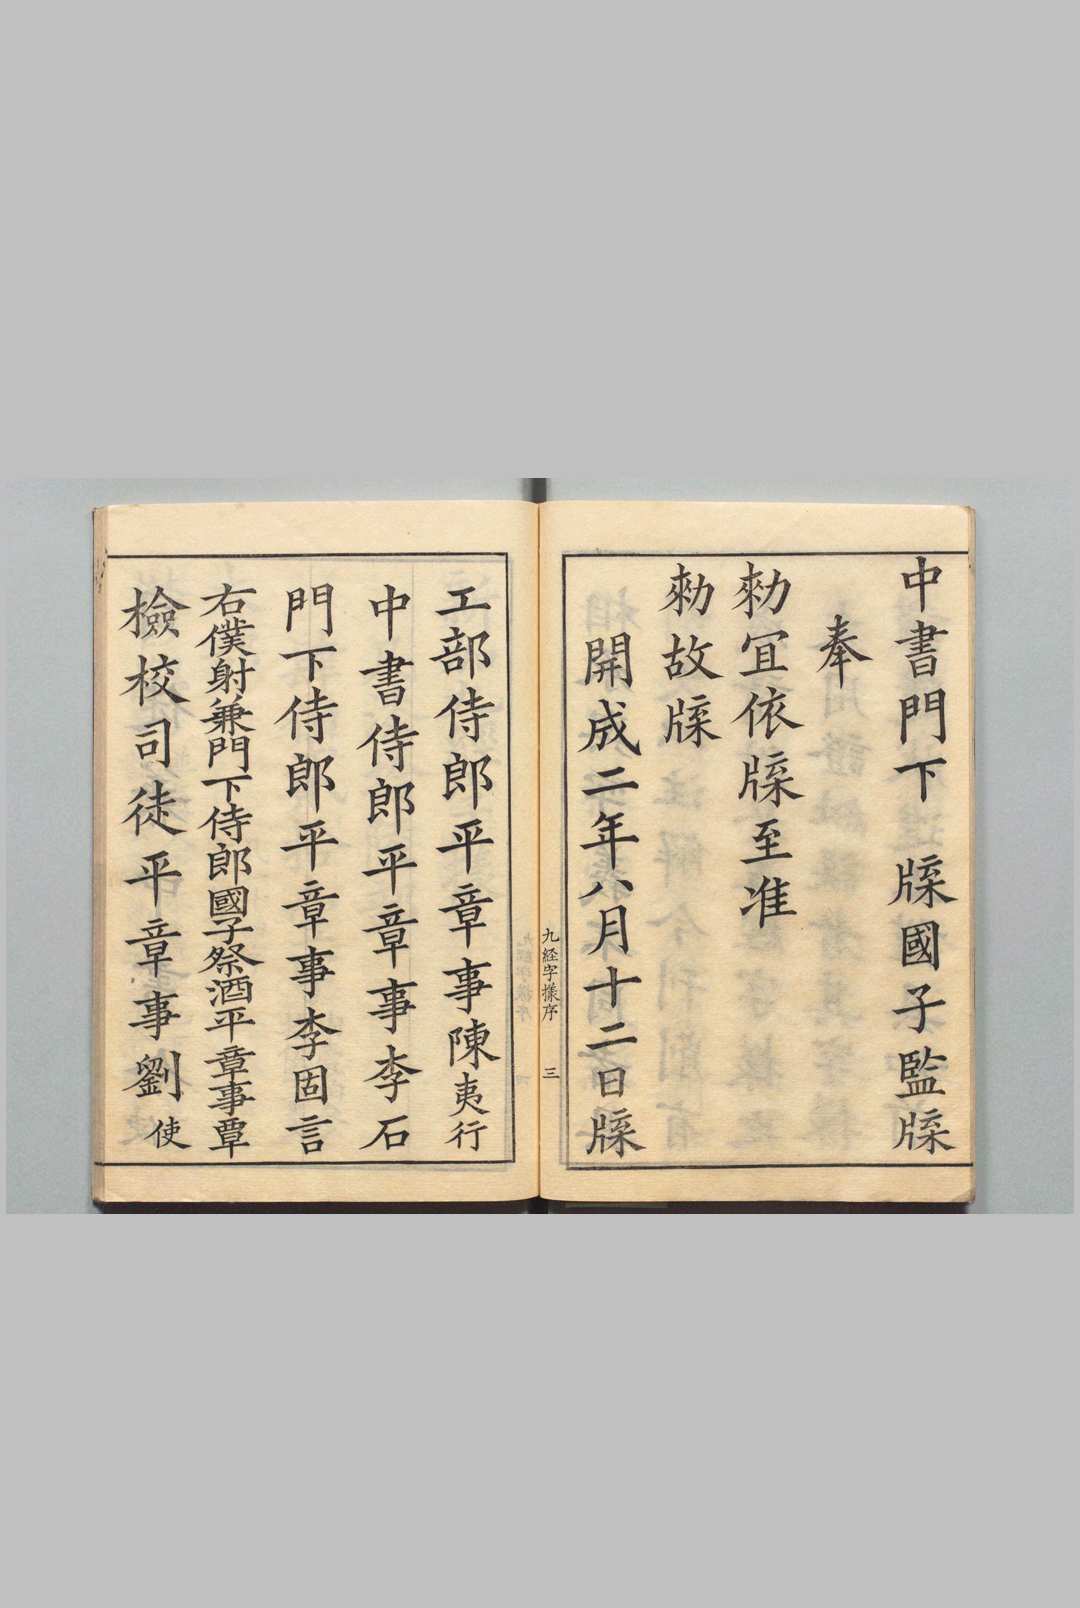 中書門下 牒國子監牒
奉
勑冝依牒至准
勑故牒
開成二年八月十二日牒
九経字㨾序 三
工部侍郎平章事陳夷行
中書侍郎平章事李石
門下侍郎平章事李固言
右僕射兼門下侍郎國子祭酒平章事覃
檢校司徒平章事劉 使